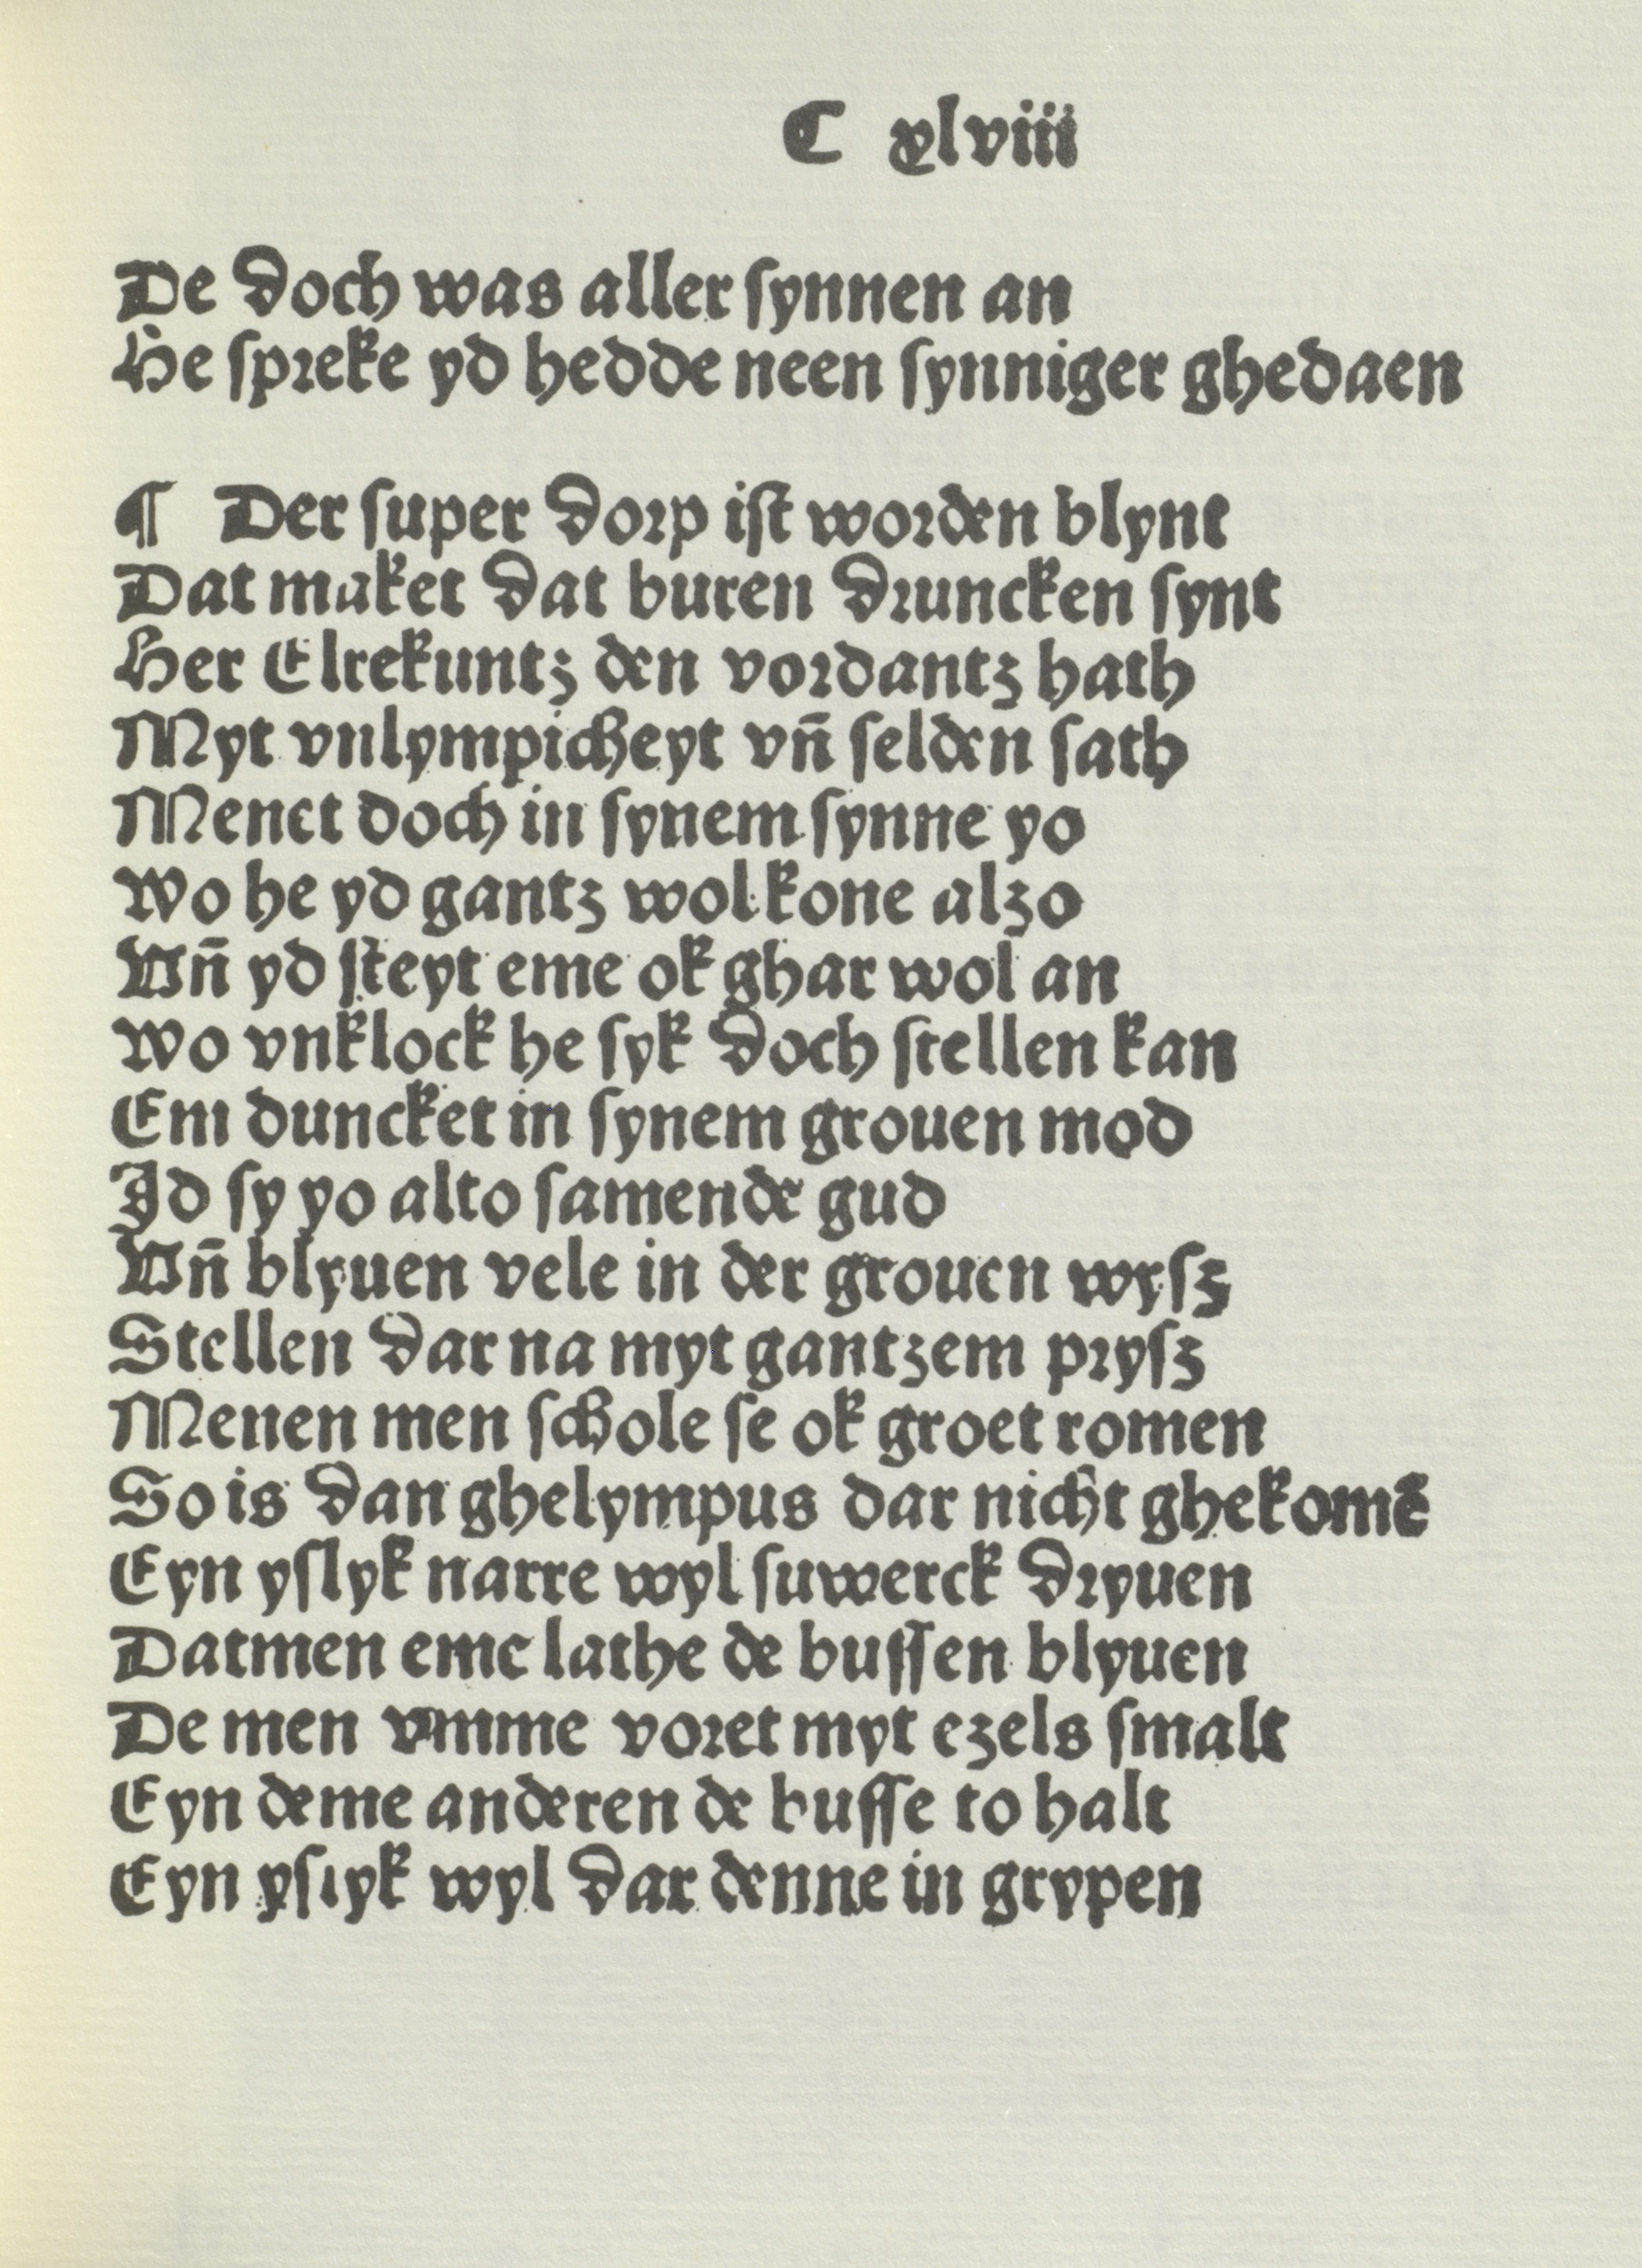 C xlviii
De doch was aller ſynnen an
He ſpreke yd hedde neen ſynniger ghedaen
¶ Der ſuper dorp iſt worden blynt
Dat maket dat buren druncken ſynt
Her Elrekuntz den vordantz hath
Myt vnlympicheyt vn̄ ſelden ſath
Menct doch in ſynem ſynne yo
Wo he yd gantz wol kone alzo
Vn̄ yd ſteyt eme ok ghar wol an
Wo vnklock he ſyk doch ſtellen kan
Em duncket in ſynem grouen mod
Id ſy yo alto ſamende gud
Vn̄ blyuen vele in der grouen wyſz
Stellen dar na myt gantzem pryſz
Menen men ſchole ſe ok groet romen
So is dan ghelympus dar nicht ghekomē
Eyn yſlyk narre wyl ſuwerck dryuen
Datmen eme lathe de buſſen blyuen
De men vmme voret myt ezels ſmalt
Eyn deme anderen de buſſe to halt
Eyn yſlyk wyl dar denne in grypen